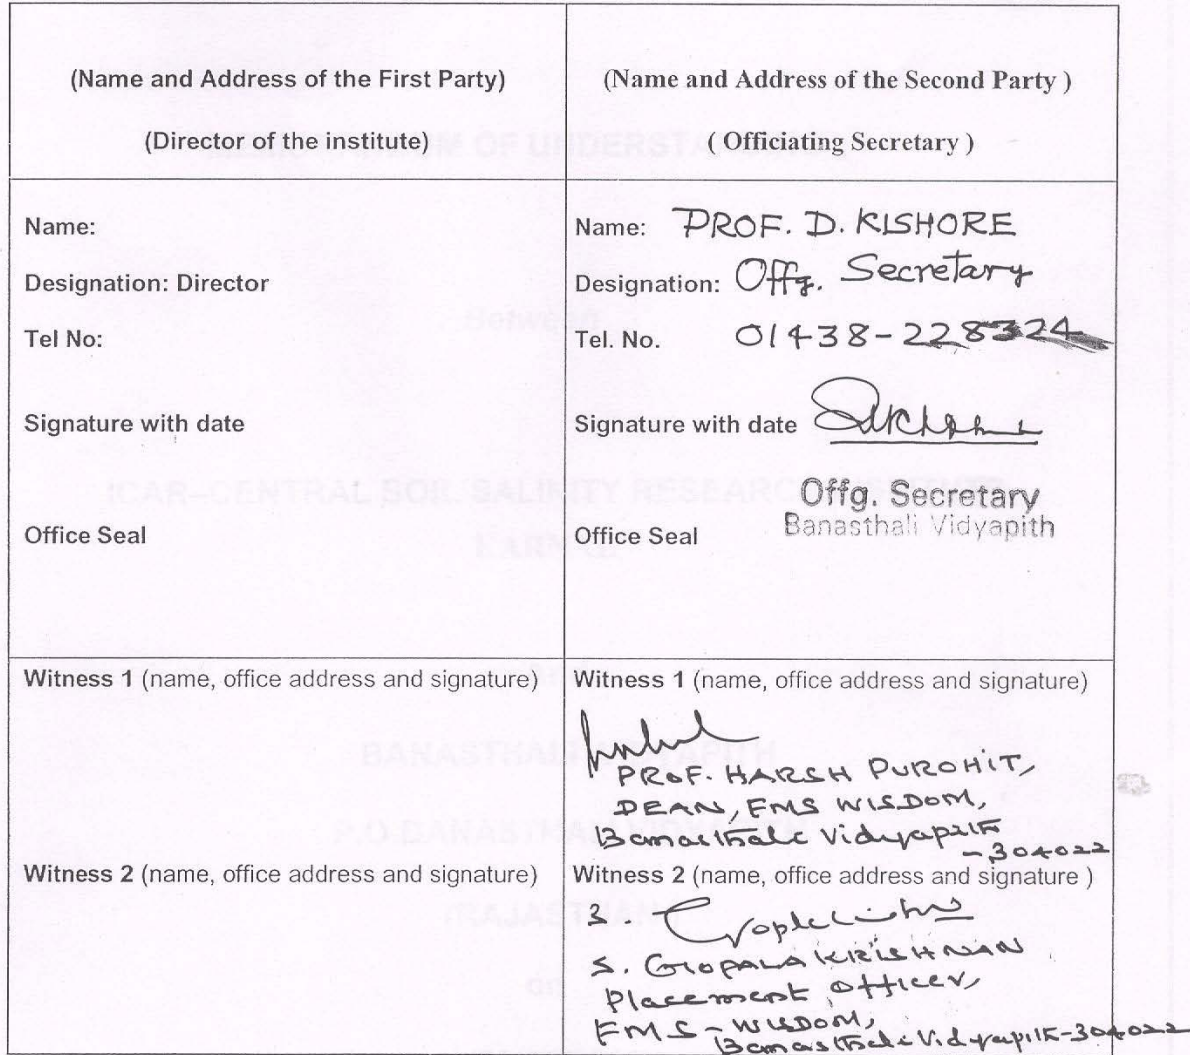 (Name and Address of the First Party)
(Director of the institute)
(Name and Address of the Second Party )
( Officiating Secretary )
Name:
Designation: Director
Tel No:
Signature with date
Office Seal
Name: PROF. D. KISHORE
Designation: Offg. Secretary
Tel. No. 01438-228324
Signature with date
Offg. Secretary
Banasthali Vidyapith
Office Seal
Witness 1 (name, office address and signature)
Witness 1 (name, office address and signature)
PROF. HARSH PUROHIT,
DEAN, FMS WISDOM,
Banasthali Vidyapith
-304022
Witness 2 (name, office address and signature)
Witness 2 (name, office address and signature )
S. GOPALAKRISHNAN
Placement Officer,
FMS - WISDOM,
Banasthali Vidyapith-304022